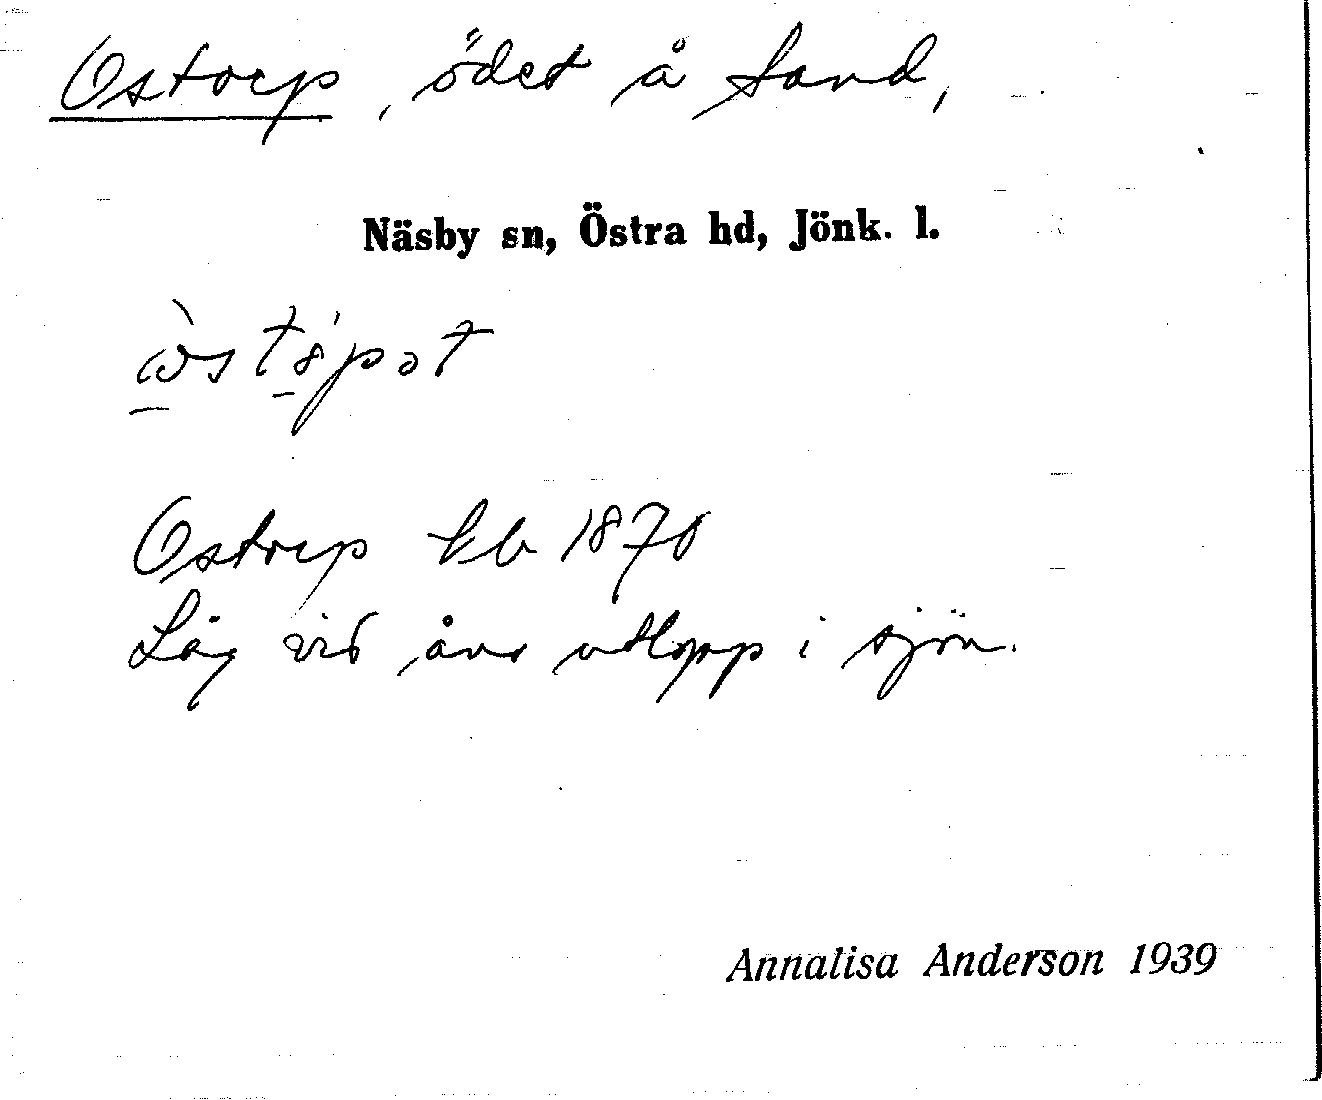 Ostorp, ödet å Sand,
Näsby sn, Östra hd, Jönk. l.
Ostorp kb 1870
Låg vid åns utlopp i sjön.
Annalisa Anderson 1939